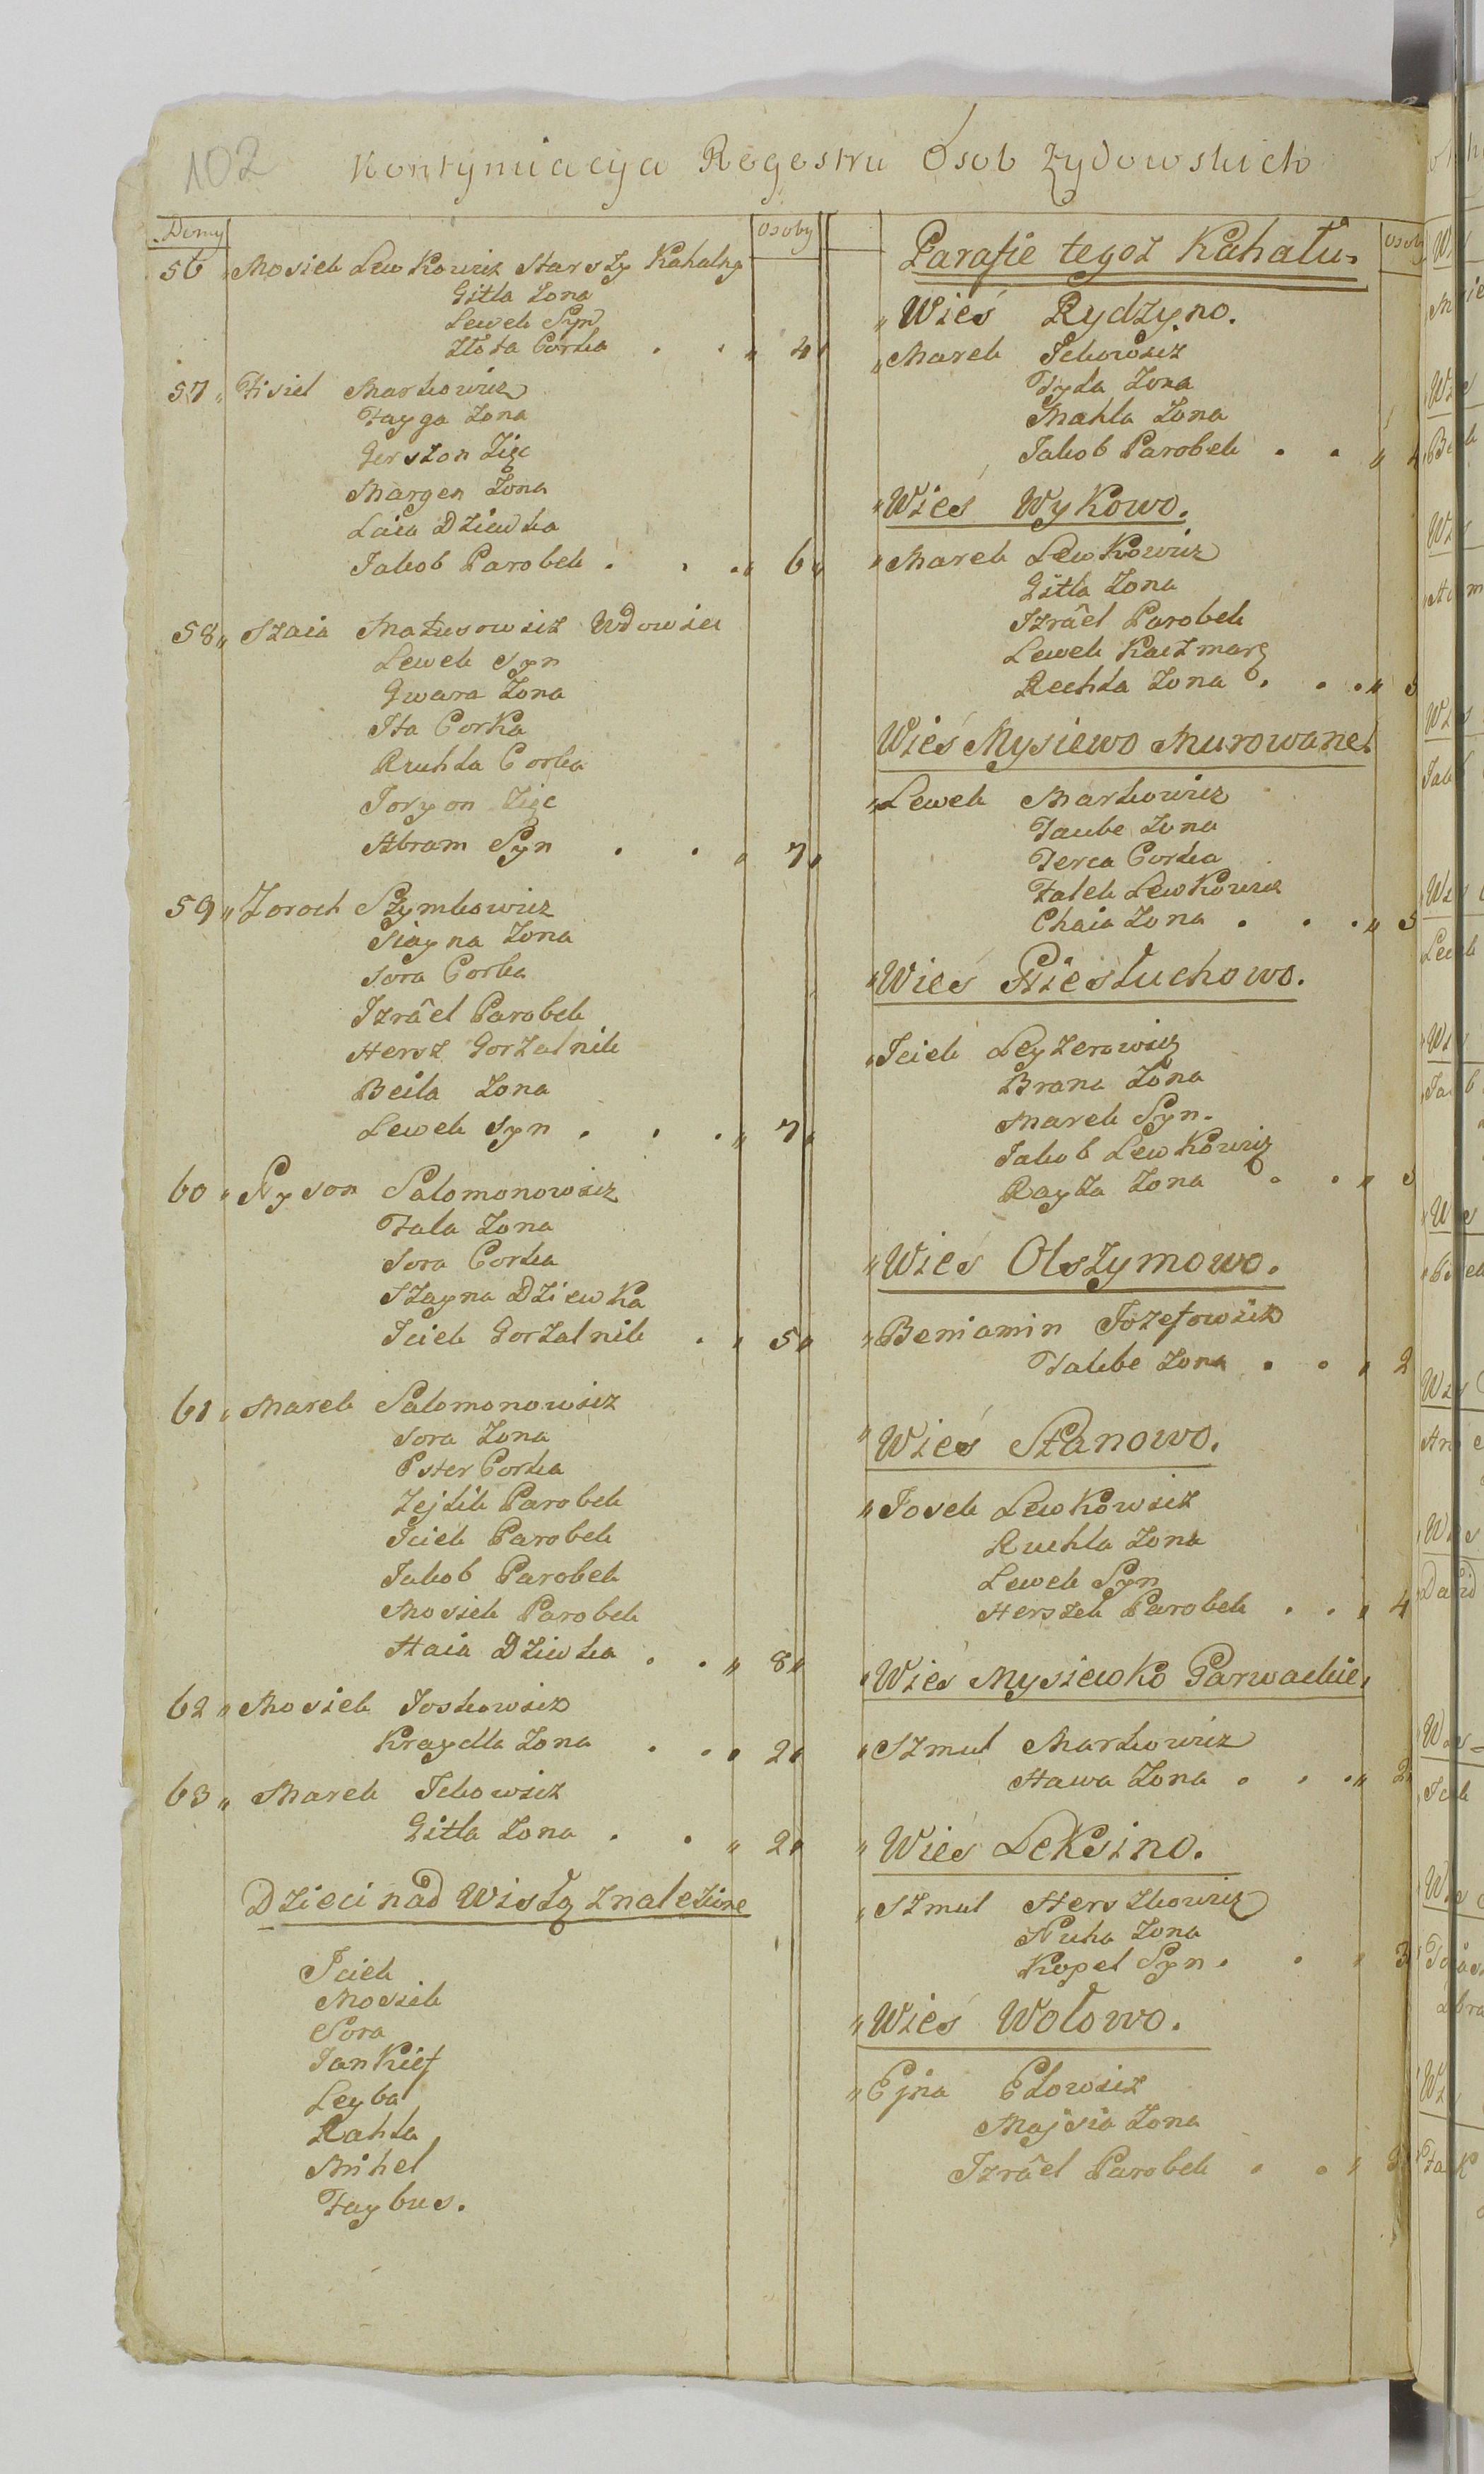 102
Kontynuacyja Regestru Osob Zydowskich
Domy Osoby
56 Mosiek Lewkowicz Starszy Kahalny
Gitla Zona
Lewek Syn
Złota Corka . . 4
57 Fisiel Markowicz
Fayga Zona
Gerszon Zięc
Margen Zona
Laia Dziewka
Jakob Parobek . . . 6
58 Szaia Matusowicz Wdowiec
Lewek Syn
Gwara Zona
Ita Corka
Ruchla Corka
Joryon Zięc
Abram Syn . . 7
59 Zoroch Szymkowicz
Siayna Zona
Sora Corka
Izrâel Parobek
Hersz Gorzalnik
Beila Zona
Lewek Syn . . . 7
60 Nyson Salomonowicz
Fala Zona
Sora Corka
Szayna Dziewka
Iciek Gorzalnik . 5
61 Marek Salomonowicz
Sora Zona
Ester Corka
Zejdik Parobek
Iciek Parobek
Jakob Parobek
Mosiek Parobek
Haia Dziwka . . 8
62 Mosiek Joskowicz
Kraydla Zona . . 2
63 Marek Ickowicz
Gitla Zona . . 2
Dzieci nad Wisłą znalezione
Iciek
Mosiek
Sora
Jankief
Leyba
Rahla
Mihel
Faybus.
Parafie tegoż Kahału. Osoby
Wieś Rydzyno.
Marek Ickowicz
Fyda Zona
Mahla Zona
Jakob Parobek . . 4
Wieś Wykowo.
Marek Lewkowicz
Gitla Zona
Izrâel Parobek
Lewek Kaczmarz
Rechla Zona . . . 5
Wieś Mysiewo Murowane.
Lewek Markowicz
Taube Zona
Perca Corka
Falek Lewkowicz
Chaia Zona . . . 5
Wieś Niesłuchowo.
Iciek Leyzerowicz
Brana Zona
Marek Syn.
Jakob Lewkowicz
Rayza Zona . . 5
Wieś Olszymowo.
Beniamin Jozefowicz
Taube Zona . . 2
Wieś Stanowo.
Josek Lewkowicz
Ruchla Zona
Lewek Syn
Herszek Parobek . . 4
Wieś Mysiewko Garwackie,
Szmul Markowicz
Hawa Zona . . . 2
Wieś Leksino.
Szmul Herszkowicz
Nuha Zona
Kopel Syn . . 3
Wieś Wołowo.
Ejna Elowicz
Majsia Zona
Izrâel Parobek . . 3